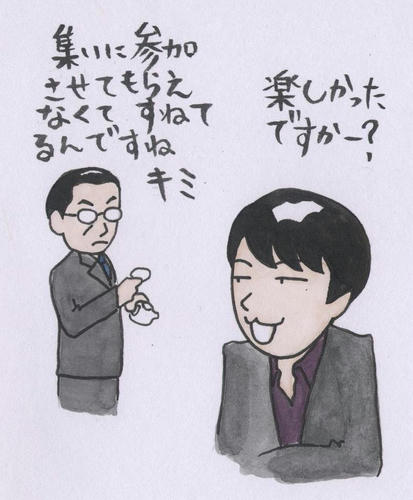 集いに参加
させてもらえ
なくてすねて
るんですね
キミ
楽しかった
ですかー?